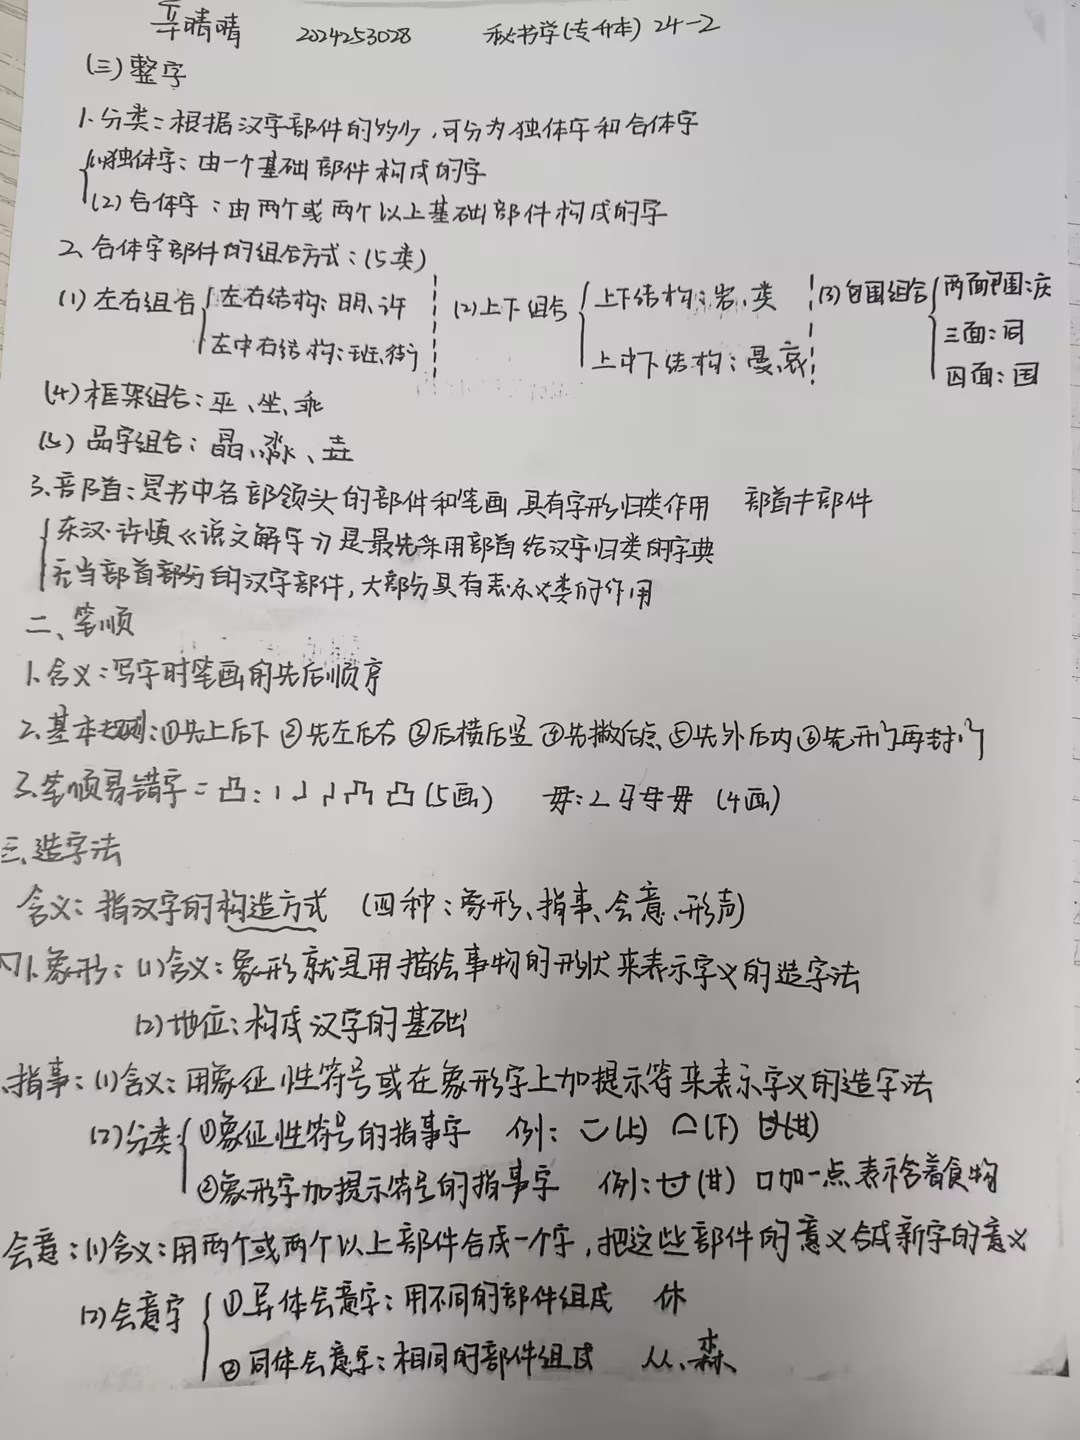 辛晴晴 2024253028 秘书学(专升本) 24-2
(三)整字
1.分类:根据汉字部件的多少,可分为独体字和合体字
(1)独体字:由一个基础部件构成的字
(2)合体字:由两个或两个以上基础部件构成的字
2.合体字部件的组合方式:(5类)
(1)左右组合 左右结构:明、许
左中右结构:班、街
(2)上下组合 上下结构:岩、类
上中下结构:曼、哀
(3)包围组合 两面包围:庆
三面:同
四面:国
(4)框架组合:巫、坐、乖
(5)品字组合:晶、淼、垚
3.部首:是书中各部领头的部件和笔画,具有字形归类作用 部首≠部件
东汉·许慎《说文解字》是最先采用部首给汉字归类的字典
充当部首部分的汉字部件,大部分具有表示义类的作用
二、笔顺
1.含义:写字时笔画的先后顺序
2.基本规则:①先上后下 ②先左后右 ③后横后竖 ④先撇后点 ⑤先外后内 ⑥先开门再封门
3.笔顺易错字:凸: 凸(5画) 毋: 毋(4画)
三.造字法
含义:指汉字的构造方式 (四种:象形、指事、会意、形声)
1.象形:(1)含义:象形就是用描绘事物的形状来表示字义的造字法
(2)地位:构成汉字的基础
指事:(1)含义:用象征性符号或在象形字上加提示符来表示字义的造字法
(2)分类 ①象征性符号的指事字 例: (上) (下) (甘)
②象形字加提示符号的指事字 例:甘(甘) 口加一点表示含着食物
会意:(1)含义:用两个或两个以上部件合成一个字,把这些部件的意义合成新字的意义
(2)会意字 ①异体会意字:用不同的部件组成 休
②同体会意字:相同的部件组成 从、森